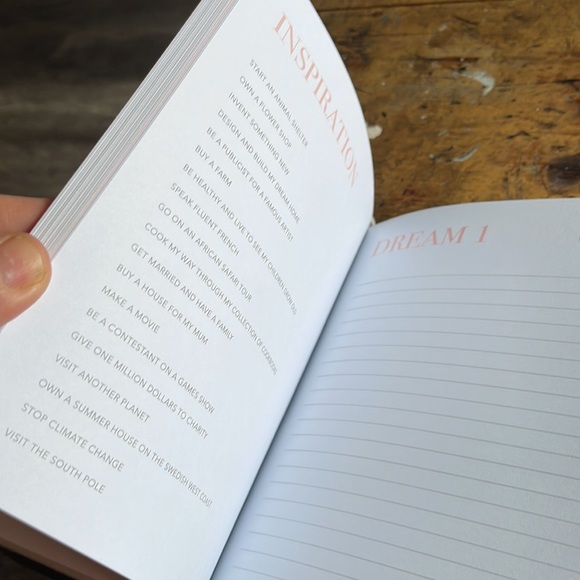 INSPIRATION
START AN ANIMAL SHELTER
OWN A FLOWER SHOP
INVENT SOMETHING NEW
DESIGN AND BUILD MY DREAM HOME
BE A PUBLICIST FOR A FAMOUS ARTIST
BUY A FARM
BE HEALTHY AND LIVE TO SEE MY CHILDREN GROW OLD
SPEAK FLUENT FRENCH
GO ON AN AFRICAN SAFARI TOUR
COOK MY WAY THROUGH MY COLLECTION OF COOKBOOKS
GET MARRIED AND HAVE A FAMILY
BUY A HOUSE FOR MY MUM
MAKE A MOVIE
BE A CONTESTANT ON A GAMES SHOW
GIVE ONE MILLION DOLLARS TO CHARITY
VISIT ANOTHER PLANET
OWN A SUMMER HOUSE ON THE SWEDISH WEST COAST
STOP CLIMATE CHANGE
VISIT THE SOUTH POLE
DREAM 1